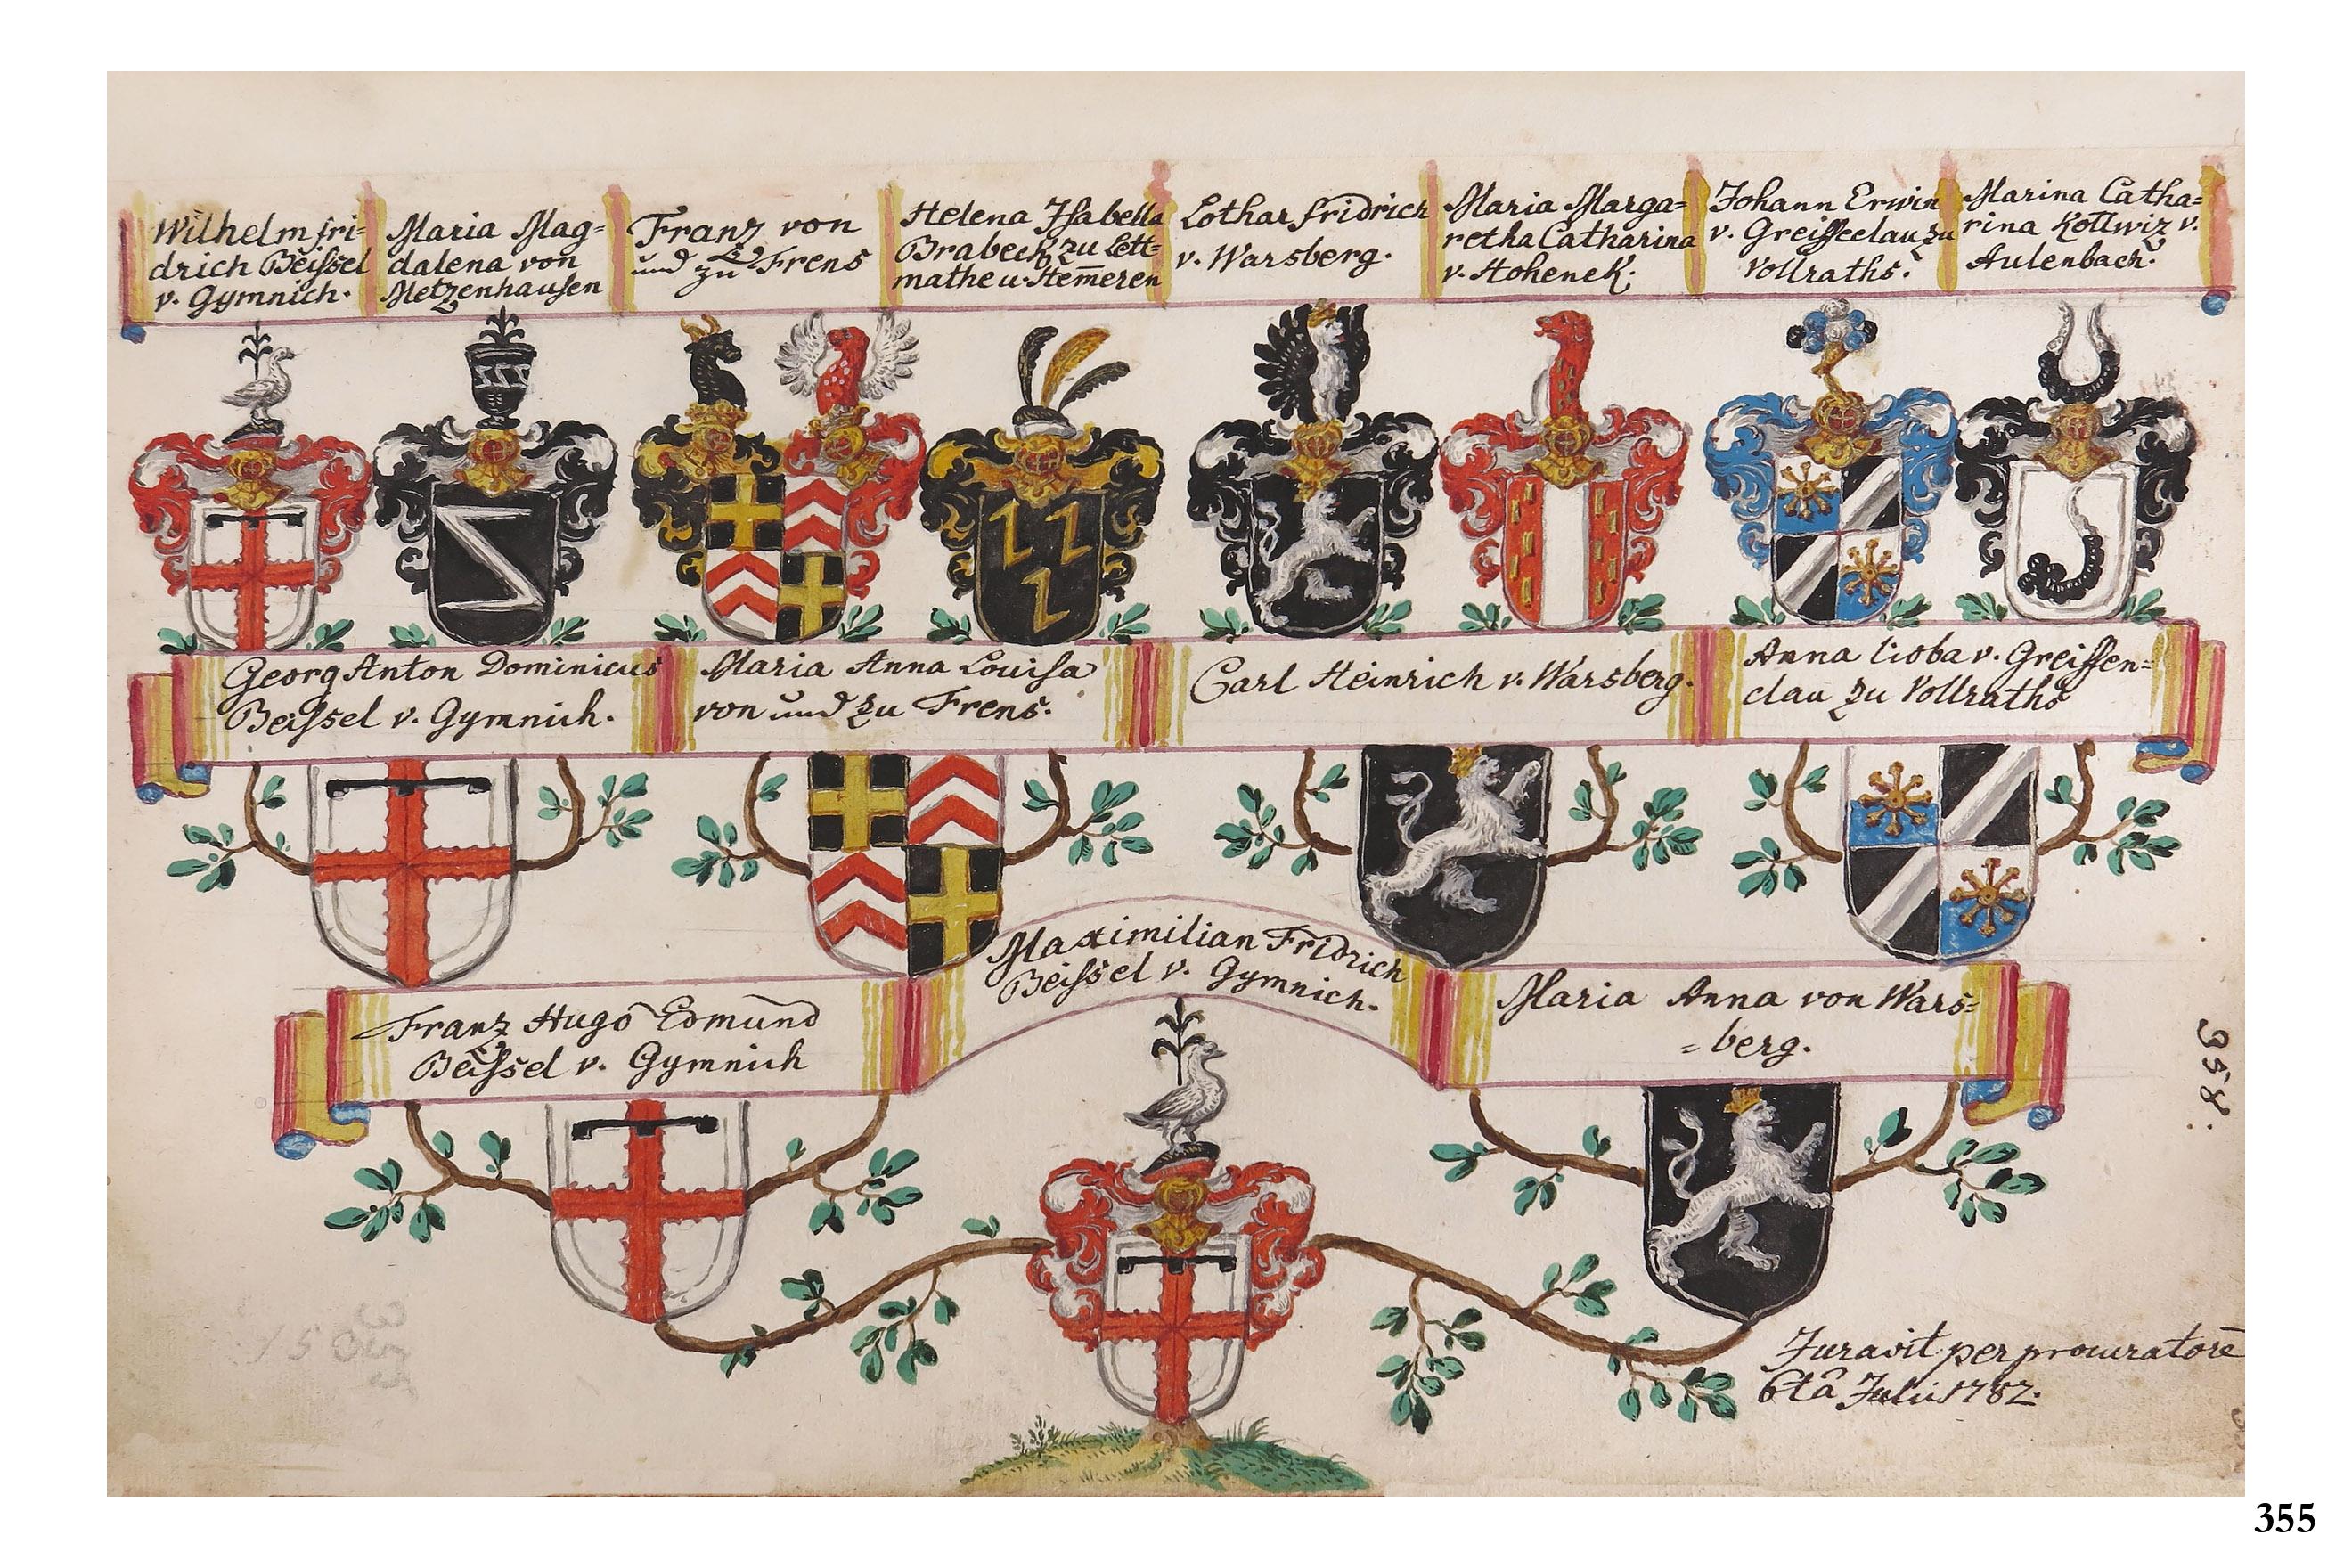 Wilhelm fri=
drich Beissel
v. Gymnich.
Maria Mag=
dalena von
Metzenhausen
Franz von
und zu Frens
Helena Isabella
Brabeck zu Lett=
mathe u. Hem̅eren
Lothar fridrich
v. Warsberg.
Maria Marga=
retha Catharina
v. Hohenek.
Johann Erwin
v. Greiffenclau zu
Vollraths.
Marina Catha=
rina Kottwiz v.
Aulenbach.
Georg Anton Dominicus
Beissel v. Gymnich.
Maria Anna Louisa
von und zu Frens.
Carl Heinrich v. Warsberg.
Anna Lioba v. Greiffen=
clau zu Vollraths
Maximilian Fridrich
Beissel v. Gymnich.
Franz Hugo Edmund
Beissel v. Gymnich
Maria Anna von Wars=
=berg.
Juravit per procuratorē
6tâ Julii 1782.
355